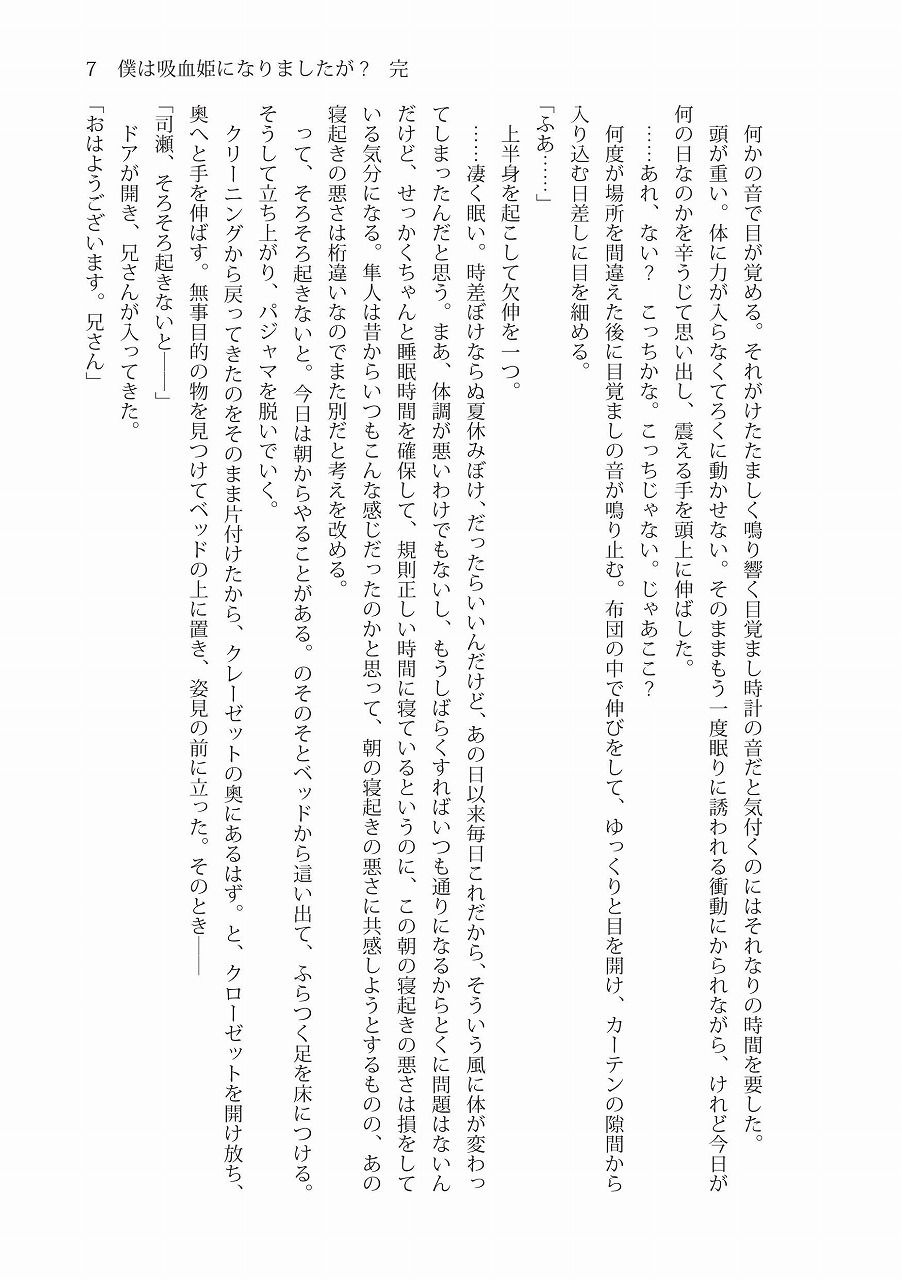 7 僕は吸血姫になりましたが? 完
何かの音で目が覚める。それがけたたましく鳴り響く目覚まし時計の音だと気付くのにはそれなりの時間を要した。
頭が重い。体に力が入らなくてろくに動かせない。そのままもう一度眠りに誘われる衝動にかられながら、けれど今日が
何の日なのかを辛うじて思い出し、震える手を頭上に伸ばした。
……あれ、ない? こっちかな。こっちじゃない。じゃあここ?
何度が場所を間違えた後に目覚ましの音が鳴り止む。布団の中で伸びをして、ゆっくりと目を開け、カーテンの隙間から
入り込む日差しに目を細める。
「ふあ……」
上半身を起こして欠伸を一つ。
……凄く眠い。時差ぼけならぬ夏休みぼけ、だったらいいんだけど、あの日以来毎日これだから、そういう風に体が変わっ
てしまったんだと思う。まあ、体調が悪いわけでもないし、もうしばらくすればいつも通りになるからとくに問題はないん
だけど、せっかくちゃんと睡眠時間を確保して、規則正しい時間に寝ているというのに、この朝の寝起きの悪さは損をして
いる気分になる。隼人は昔からいつもこんな感じだったのかと思って、朝の寝起きの悪さに共感しようとするものの、あの
寝起きの悪さは桁違いなのでまた別だと考えを改める。
って、そろそろ起きないと。今日は朝からやることがある。のそのそとベッドから這い出て、ふらつく足を床につける。
そうして立ち上がり、パジャマを脱いでいく。
クリーニングから戻ってきたのをそのまま片付けたから、クレーゼットの奥にあるはず。と、クローゼットを開け放ち、
奥へと手を伸ばす。無事目的の物を見つけてベッドの上に置き、姿見の前に立った。そのとき――
「司瀬、そろそろ起きないと――」
ドアが開き、兄さんが入ってきた。
「おはようございます。兄さん」